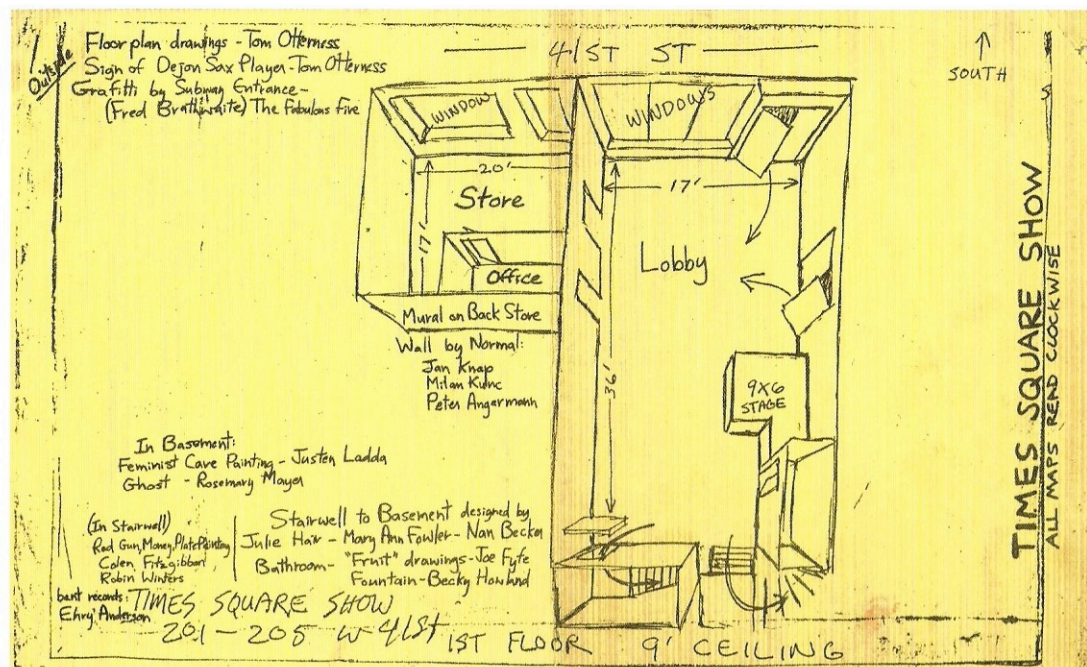 Outside
Floor plan drawings - Tom Otterness
Sign of Dejon Sax Player - Tom Otterness
Grafitti by Subway Entrance -
(Fred Brathwaite) The Fabulous Five
41ST ST
SOUTH
WINDOW
WINDOWS
20'
17'
Store
17'
Lobby
Office
Mural on Back Store
Wall by Normal:
Jan Knap
Milan Kunc
Peter Angermann
36'
9X6
STAGE
In Basement:
Feminist Cave Painting - Justen Ladda
Ghost - Rosemary Mayer
(In Stairwell)
Red Gun, Money, Plate Painting
Colen, Fitzgibbon
Robin Winters
Stairwell to Basement designed by
Julie Hair - Mary Ann Fowler - Nan Becker
Bathroom - "Fruit" drawings - Joe Fyfe
Fountain - Becky Howland
bent records:
Ehry Anderson
TIMES SQUARE SHOW
201-205 W 41st
1ST FLOOR 9' CEILING
TIMES SQUARE SHOW
ALL MAPS READ CLOCKWISE